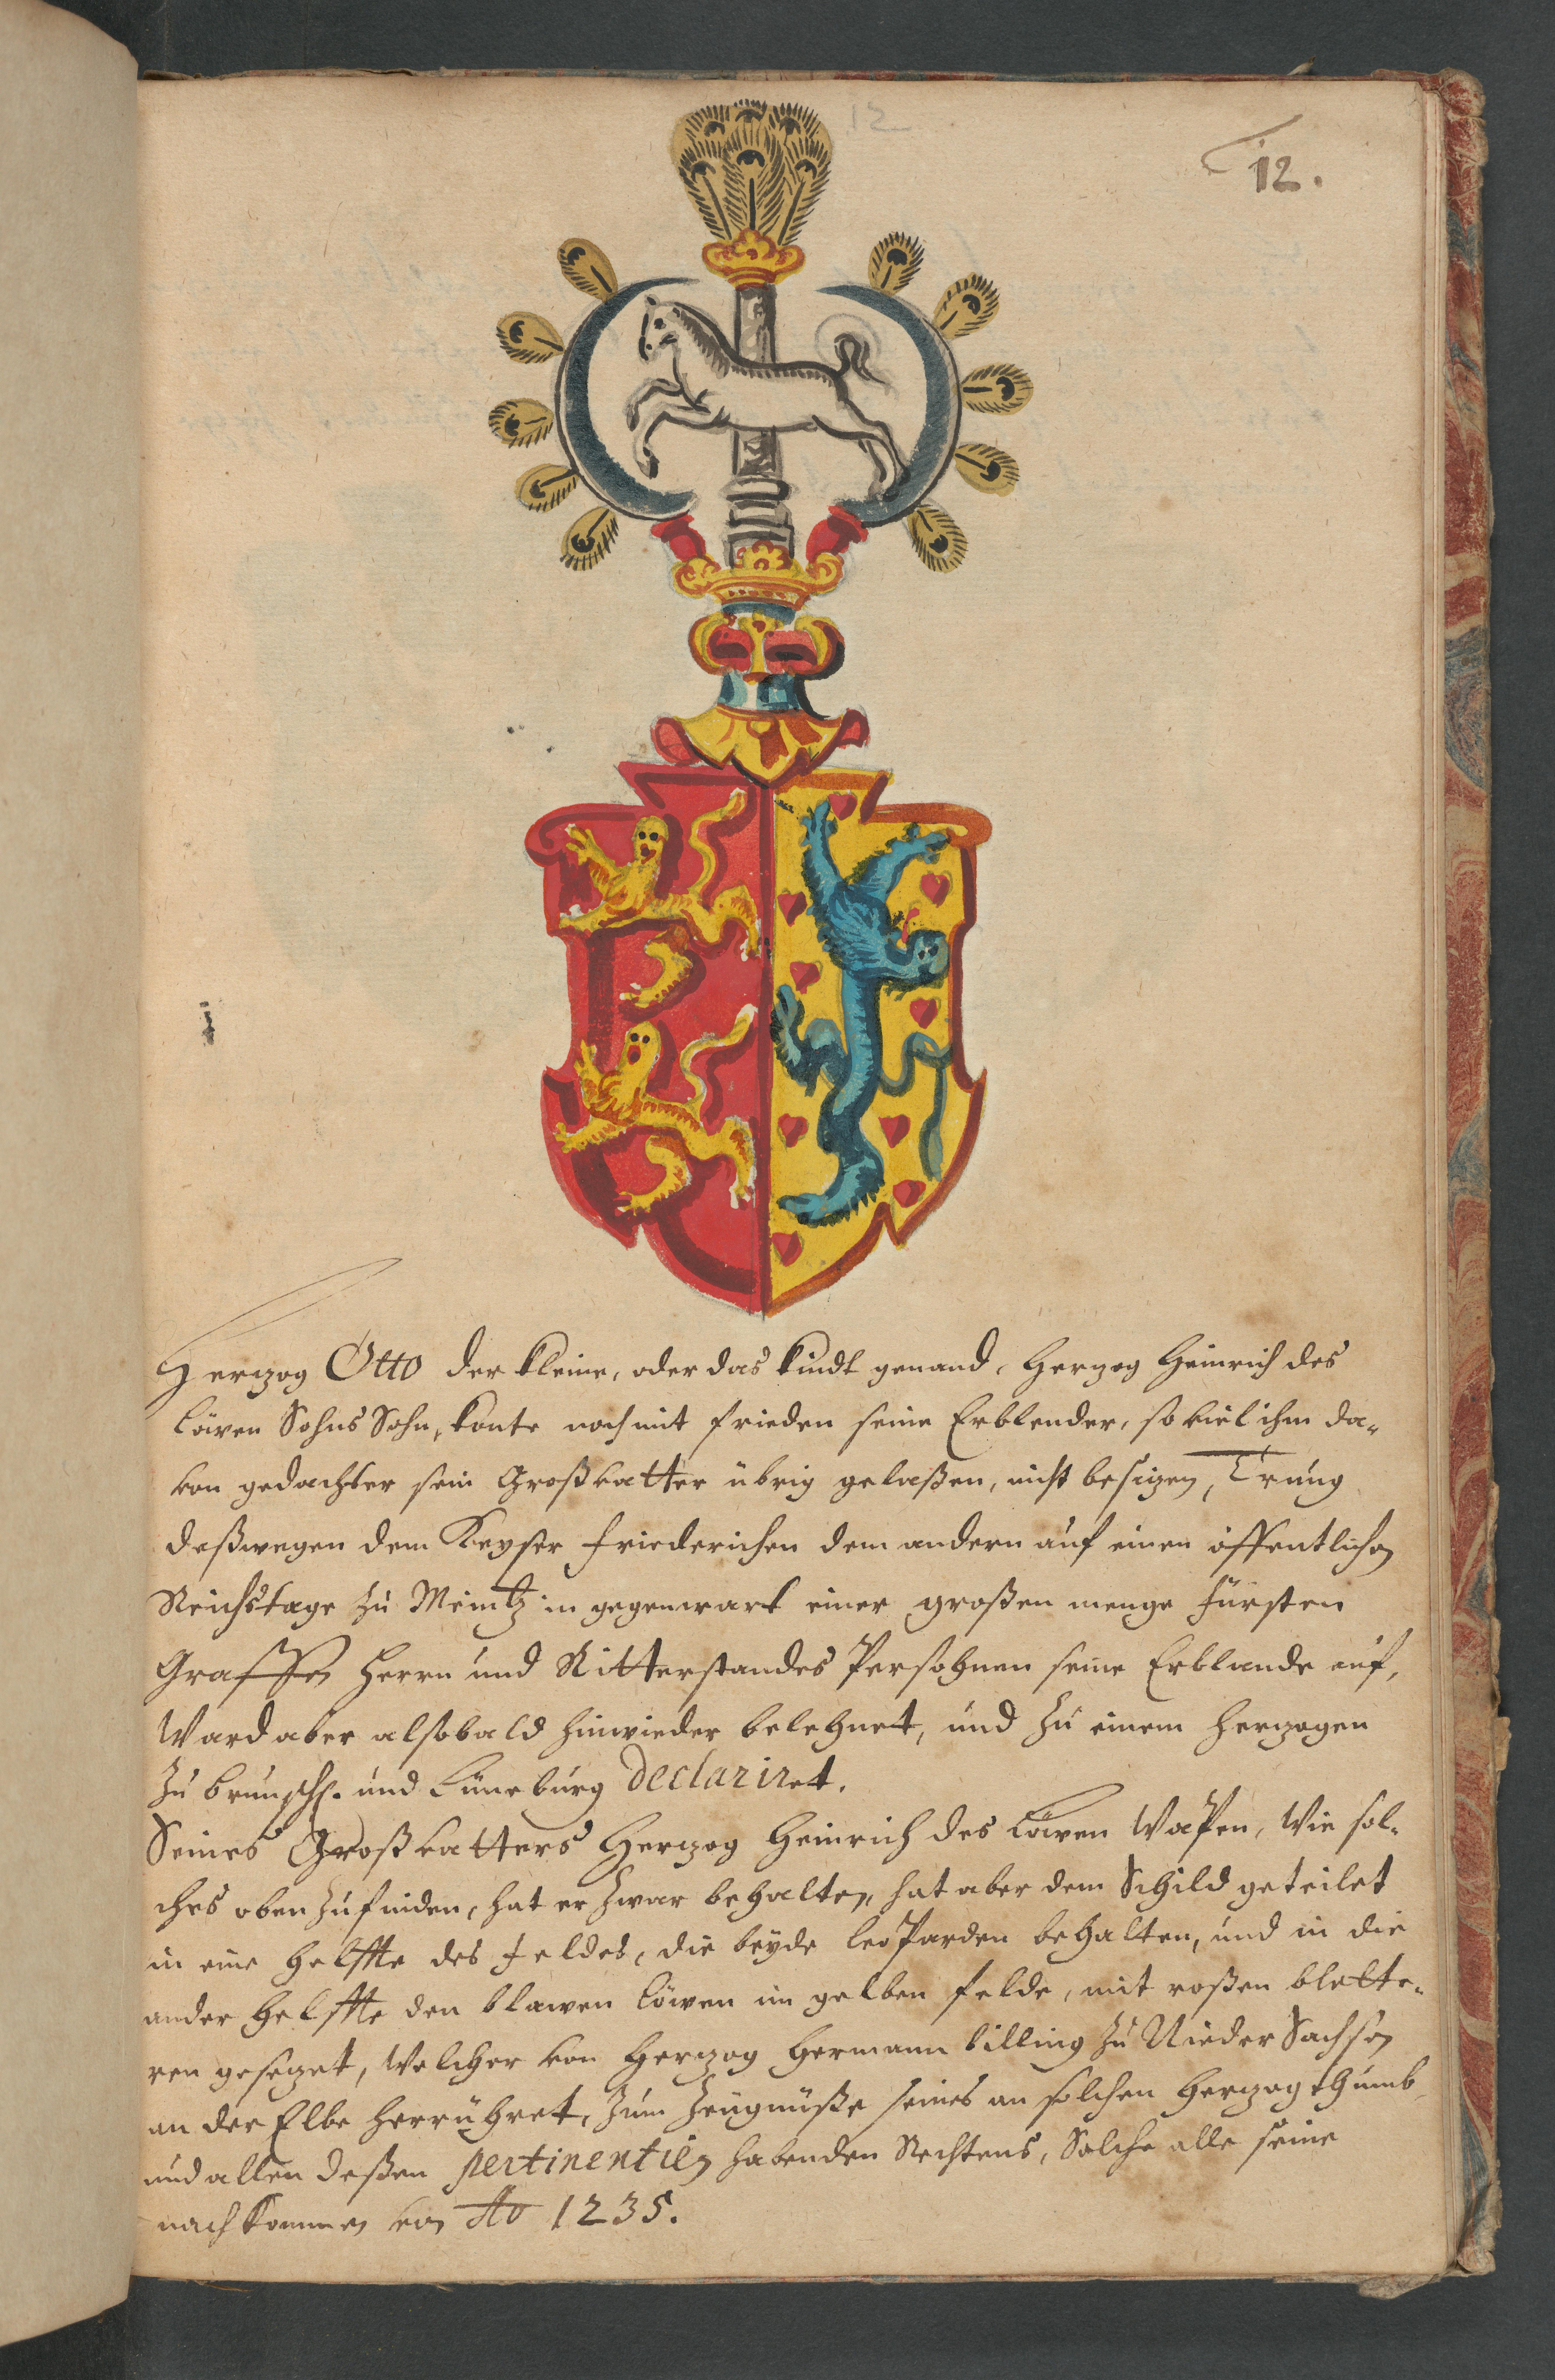 12
12.
Hertzog Otto der kleine, oder das kindt genand, Hertzog Heinrich des
Löwen Sohns Sohn, konte noch mit frieden seine Erblender, so viel ihm da-
von gedachter sein Großvatter übrig gelaßen, nicht besitzen, Trung
deßwegen dem Keyser Friederichen dem andern auf einen öffentlichen
Reichstage zu Meintz in gegenwart einer großen menge fürsten
Graffen Herrn und Ritterstandes Persohnen seine Erblande auf,
Ward aber alsobald hinwieder belehnet, und zu einem Hertzogen
zu Brunschw. und Lüneburg declariret.
Seines Großvatters Hertzog Heinrich des Löwen Wapen, Wie sol-
ches oben zufinden, hat er zwar behalten, hat aber dem Schild geteilet
in eine helffte des feldes, die beyde leoparden behalten, und in die
ander helffte den blawen Löwen im gelben felde, mit roßen blette-
ren gesetzet, Welcher von Hertzog Hermann billing zu Nieder Sachsen
an der Elbe herrühret, zum zeugnüße seines an solchen Hertzogthumb
und allen deßen pertinentien habenden Rechtens, Solche alle seine
nachkommen von Ao 1235.